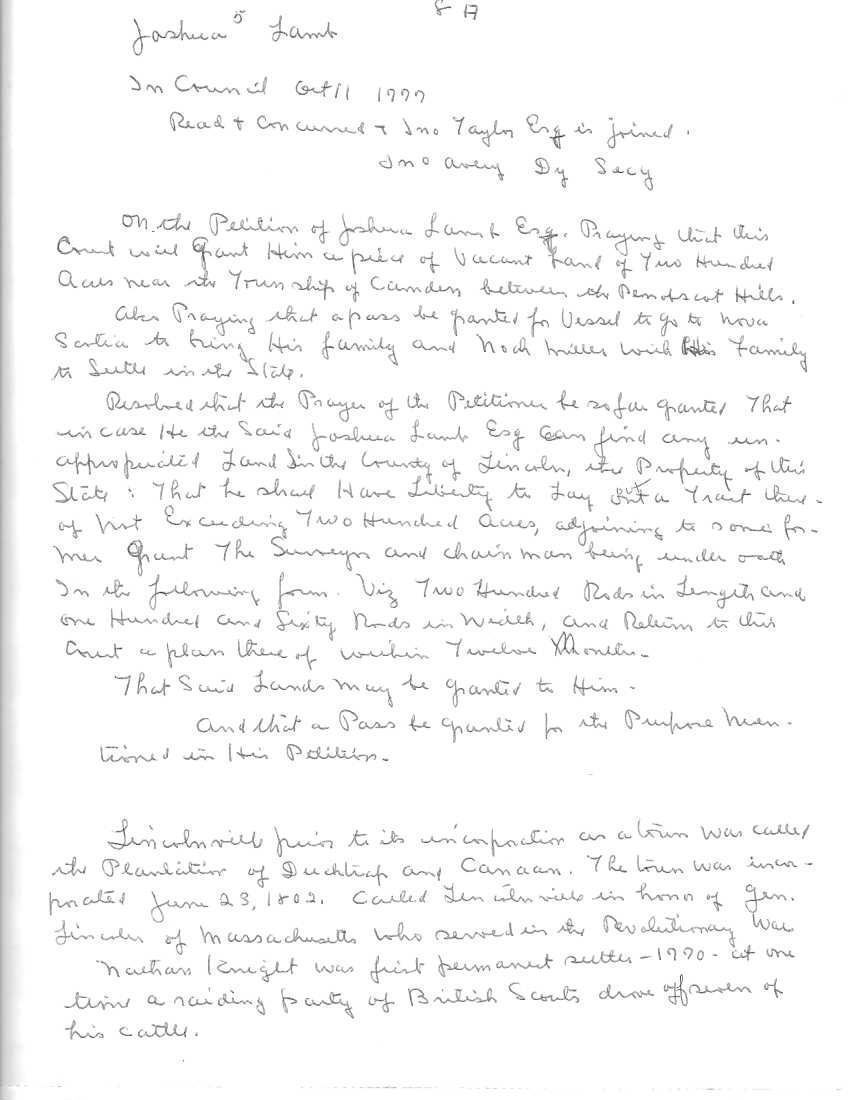 8 A
Joshua 5 Lamb
In Council Oct 11 1777
Read & Concurred & Jno Taylor Esq is joined.
Jno Avery Dy Secy
On the Petition of Joshua Lamb Esq. Praying that this
Court will Grant Him a piece of Vacant Land of Two Hundred
Acres near the Township of Camden between the Penobscot Hills.
Also Praying that a pass be granted for Vessel to go to Nova
Scotia to bring His family and Noah Miller with His Family
to Settle in the State.
Resolved that the Prayer of the Petitioner be so far granted That
in case He the Said Joshua Lamb Esq Can find any un-
appropriated Land In the County of Lincoln, the Property of this
State: That he shall Have Liberty to Lay out a Tract there-
of Not Exceeding Two Hundred Acres, adjoining to some for-
mer Grant The Surveyor and chainman being under oath
In the following form. Viz Two Hundred Rods in Length and
one Hundred and Sixty Rods in Width, and Return to this
Court a plan there of within Twelve Months-
That Said Lands may be granted to Him-
And that a Pass be granted for the Purpose Men-
tioned in His Petition.
Lincolnville prior to its incorporation as a town was called
the Plantation of Ducktrap and Canaan. The town was incor-
porated June 23, 1802. Called Lincolnville in honor of Gen.
Lincoln of Massachusetts who served in the Revolutionary War
Nathan Knight was first permanent settler-1770- at one
time a raiding party of British Scouts drove off seven of
his cattle.